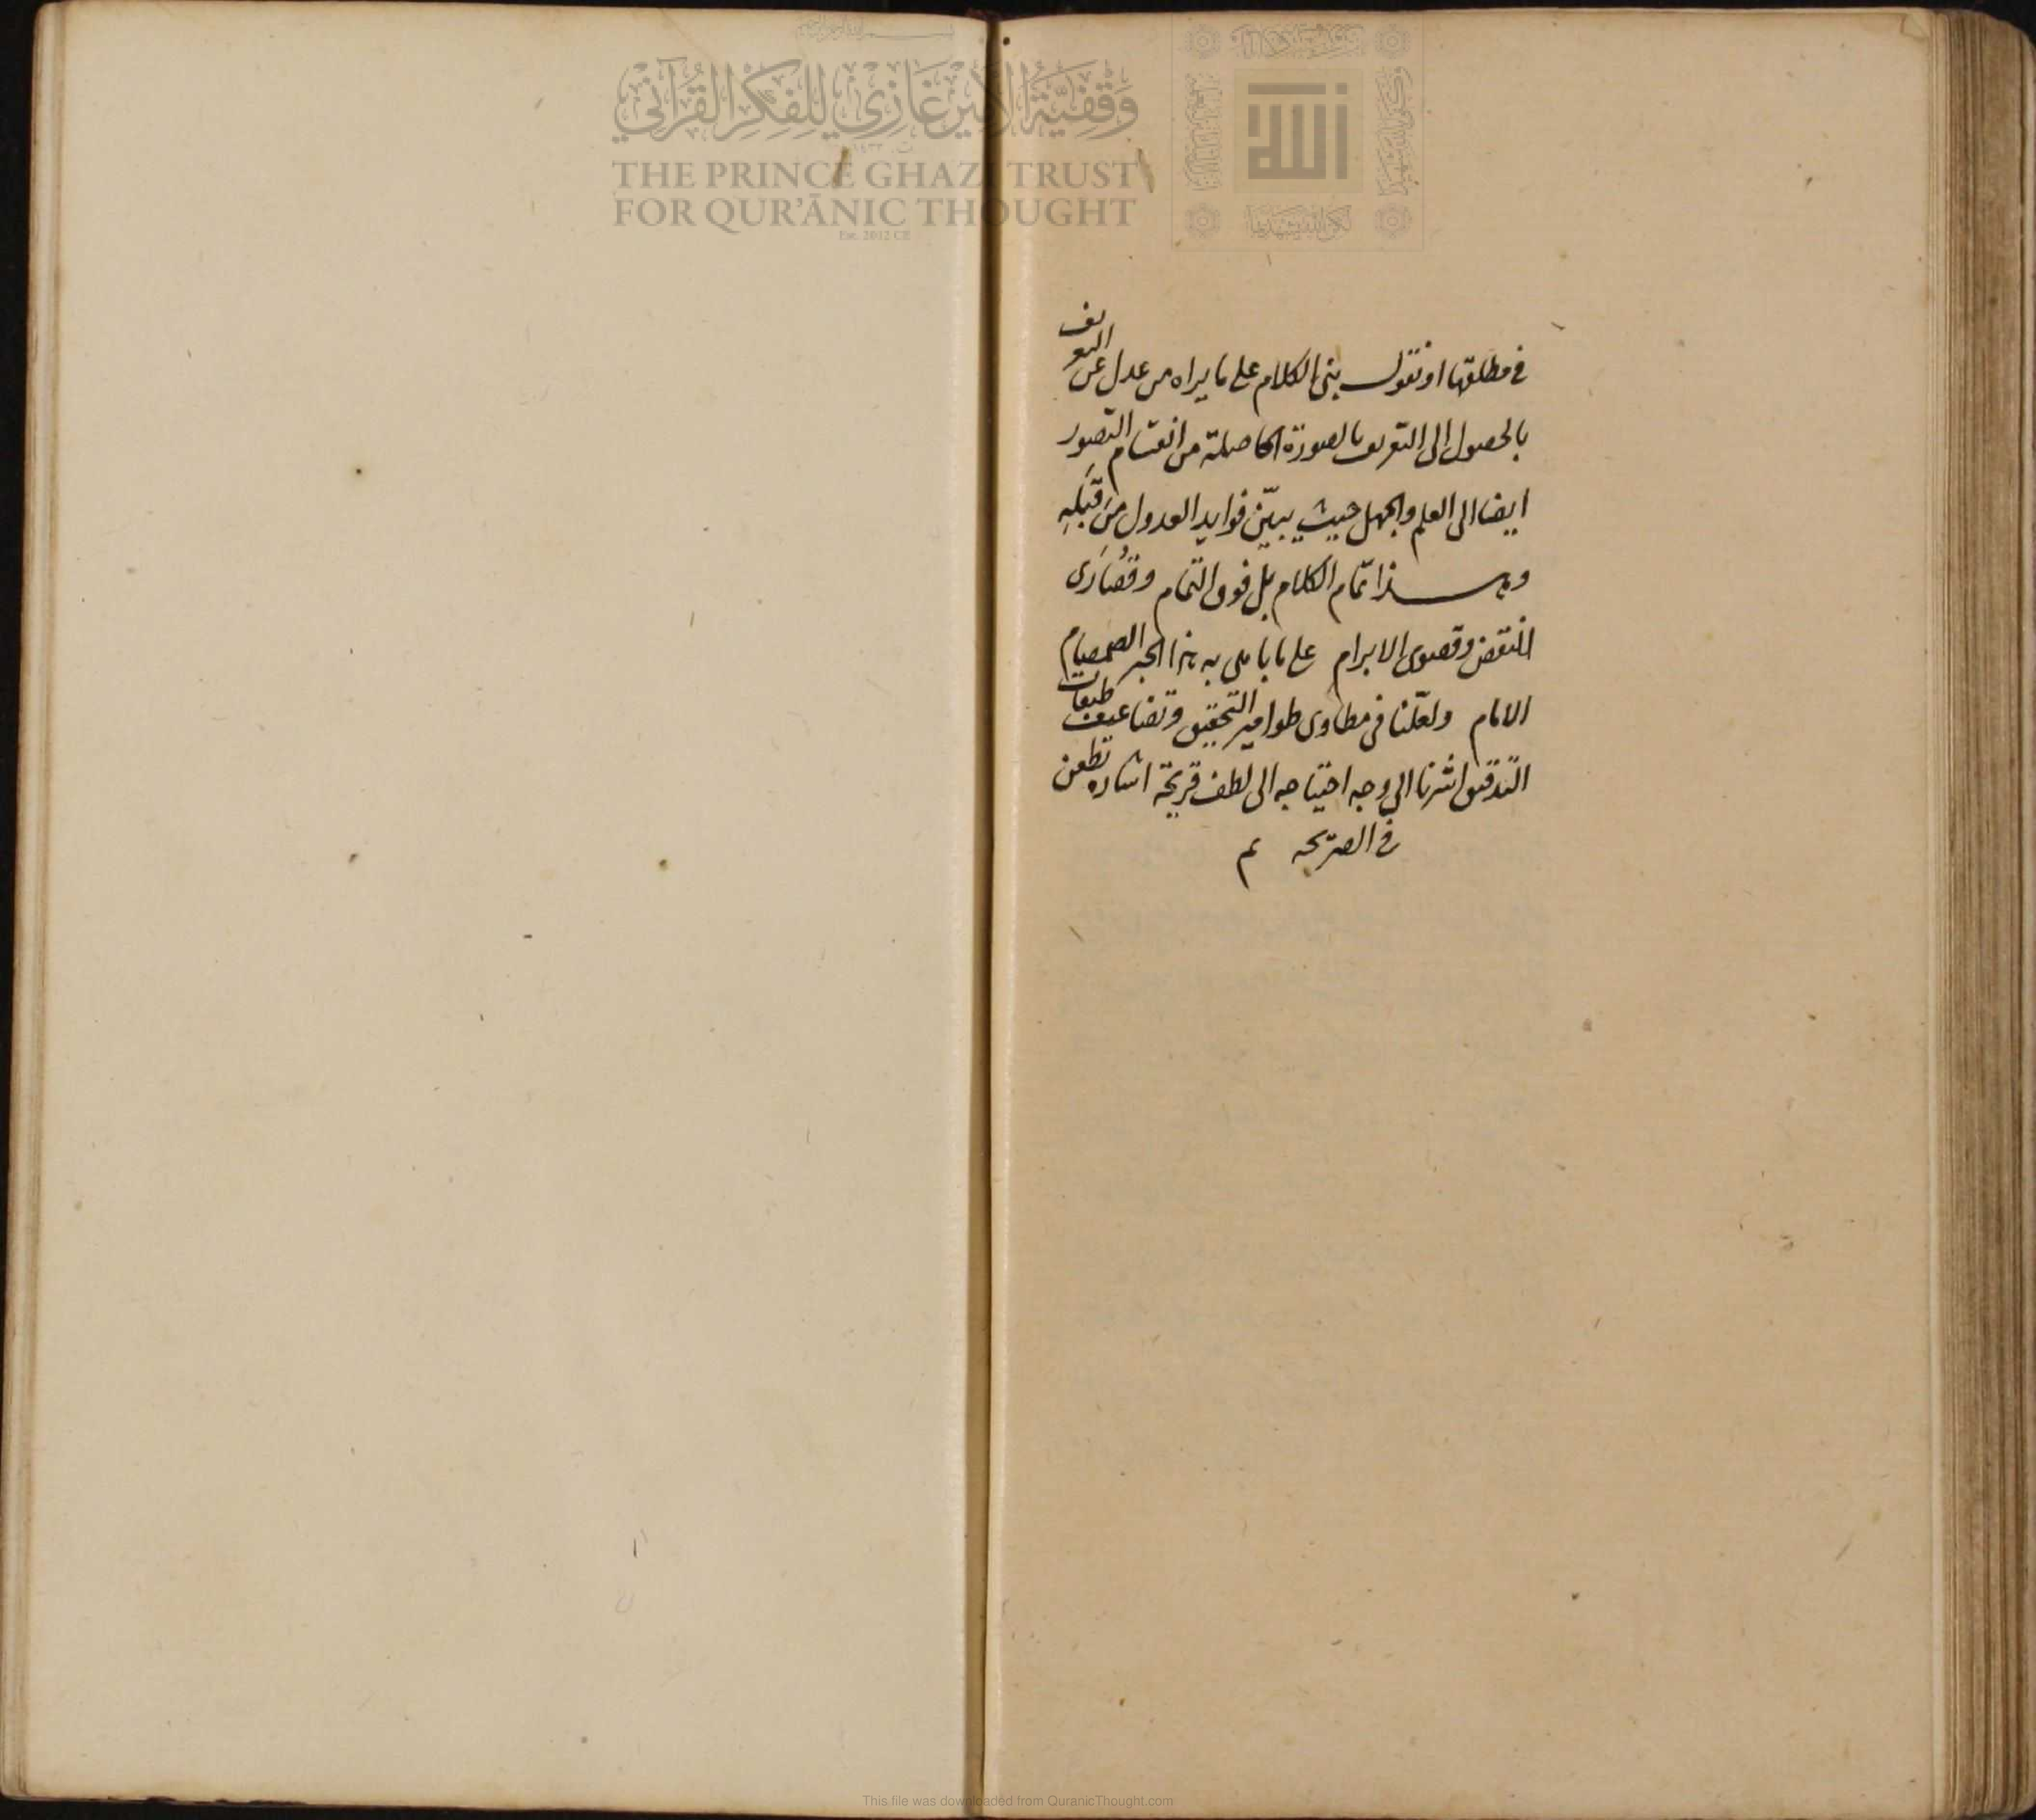 وقفية الأمير غازي للفكر القرآني
THE PRINCE GHAZI TRUST
FOR QUR'ĀNIC THOUGHT
Est. 2012 CE
الله
في مطلقها او نقول بنى الكلام على ما يراه من عدل عن التعريف
بالحصول الى التعريف بالصورة الحاصلة من انقسام التصور
ايضا الى العلم والجهل حيث يبيّن فوايد العدول من قِبَلِه
وبهذا تمّام الكلام بل فوق التمام وقُصَارَى
النقض وقصوى الابرام على ما به هذا الحبر الصمصام
الامام ولعلّنا في مطاوى طوامير التحقيق وتضاعيف طبقات
التدقيق اشرنا الى وجه احتياجه الى لطف قريحة
في
This file was downloaded from QuranicThought.com